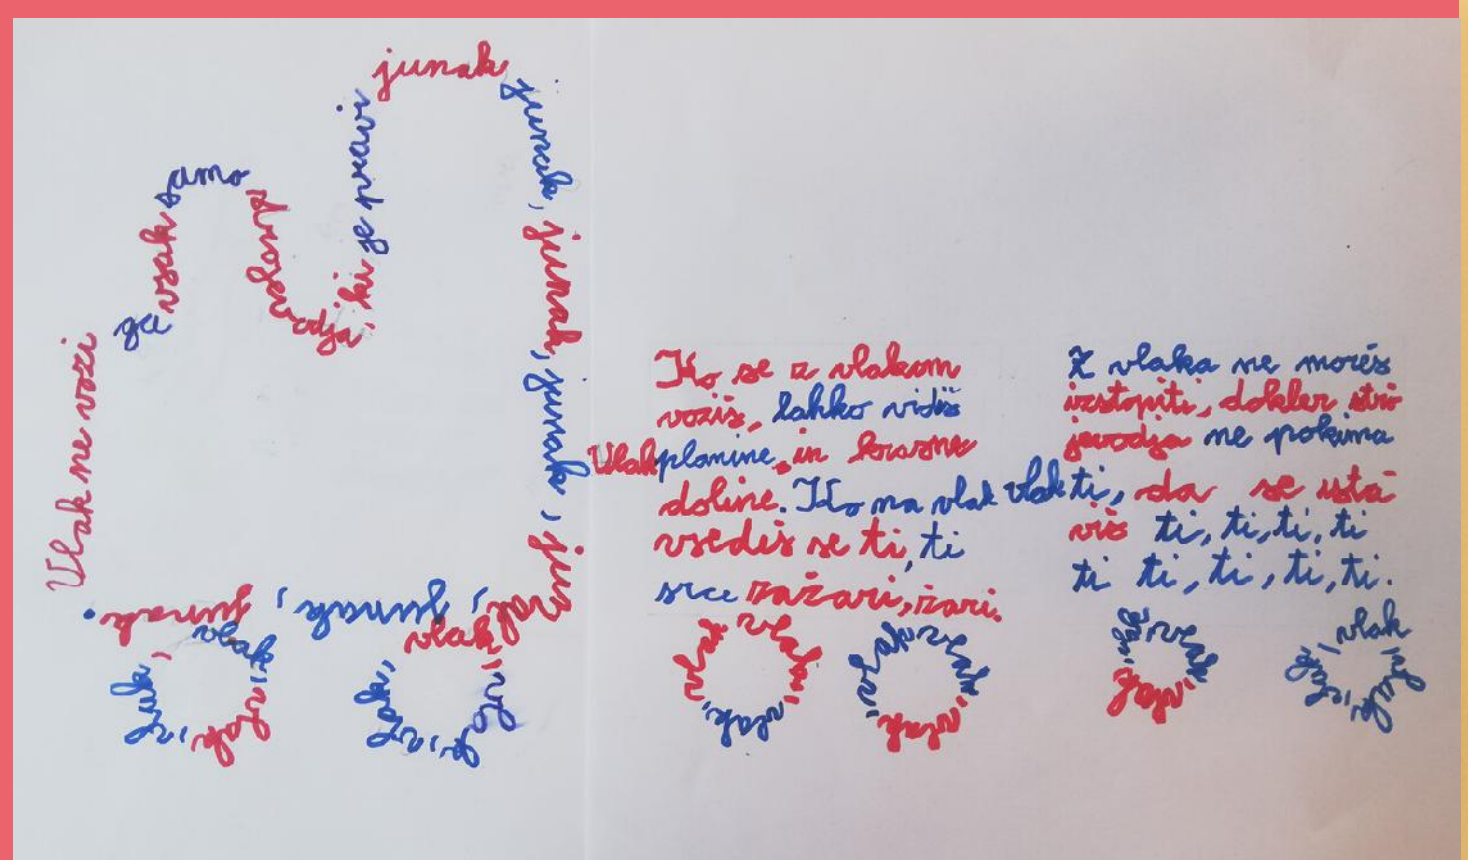 Vlak ne vozi
ga
vsak
samo
strojevodja,
ki
je pravi
junak
junak,
junak,
junak,
junak,
junak,
junak.
vlak, vlak, vlak,
vlak, vlak, vlak,
Vlak
Ko se z vlakom
voziš, lahko vidiš
planine, in krasne
doline. Ko na vlak
vsediš se ti, ti
srce zažari, žari.
vlak, vlak, vlak
vlak, vlak, vlak,
vlak
Z vlaka ne moreš
izstopiti, dokler stro
jevodja ne pokima
ti, da se usta
viš ti, ti, ti, ti
ti ti, ti, ti, ti.
vlak, vlak, vlak,
vlak, vlak, vlak,